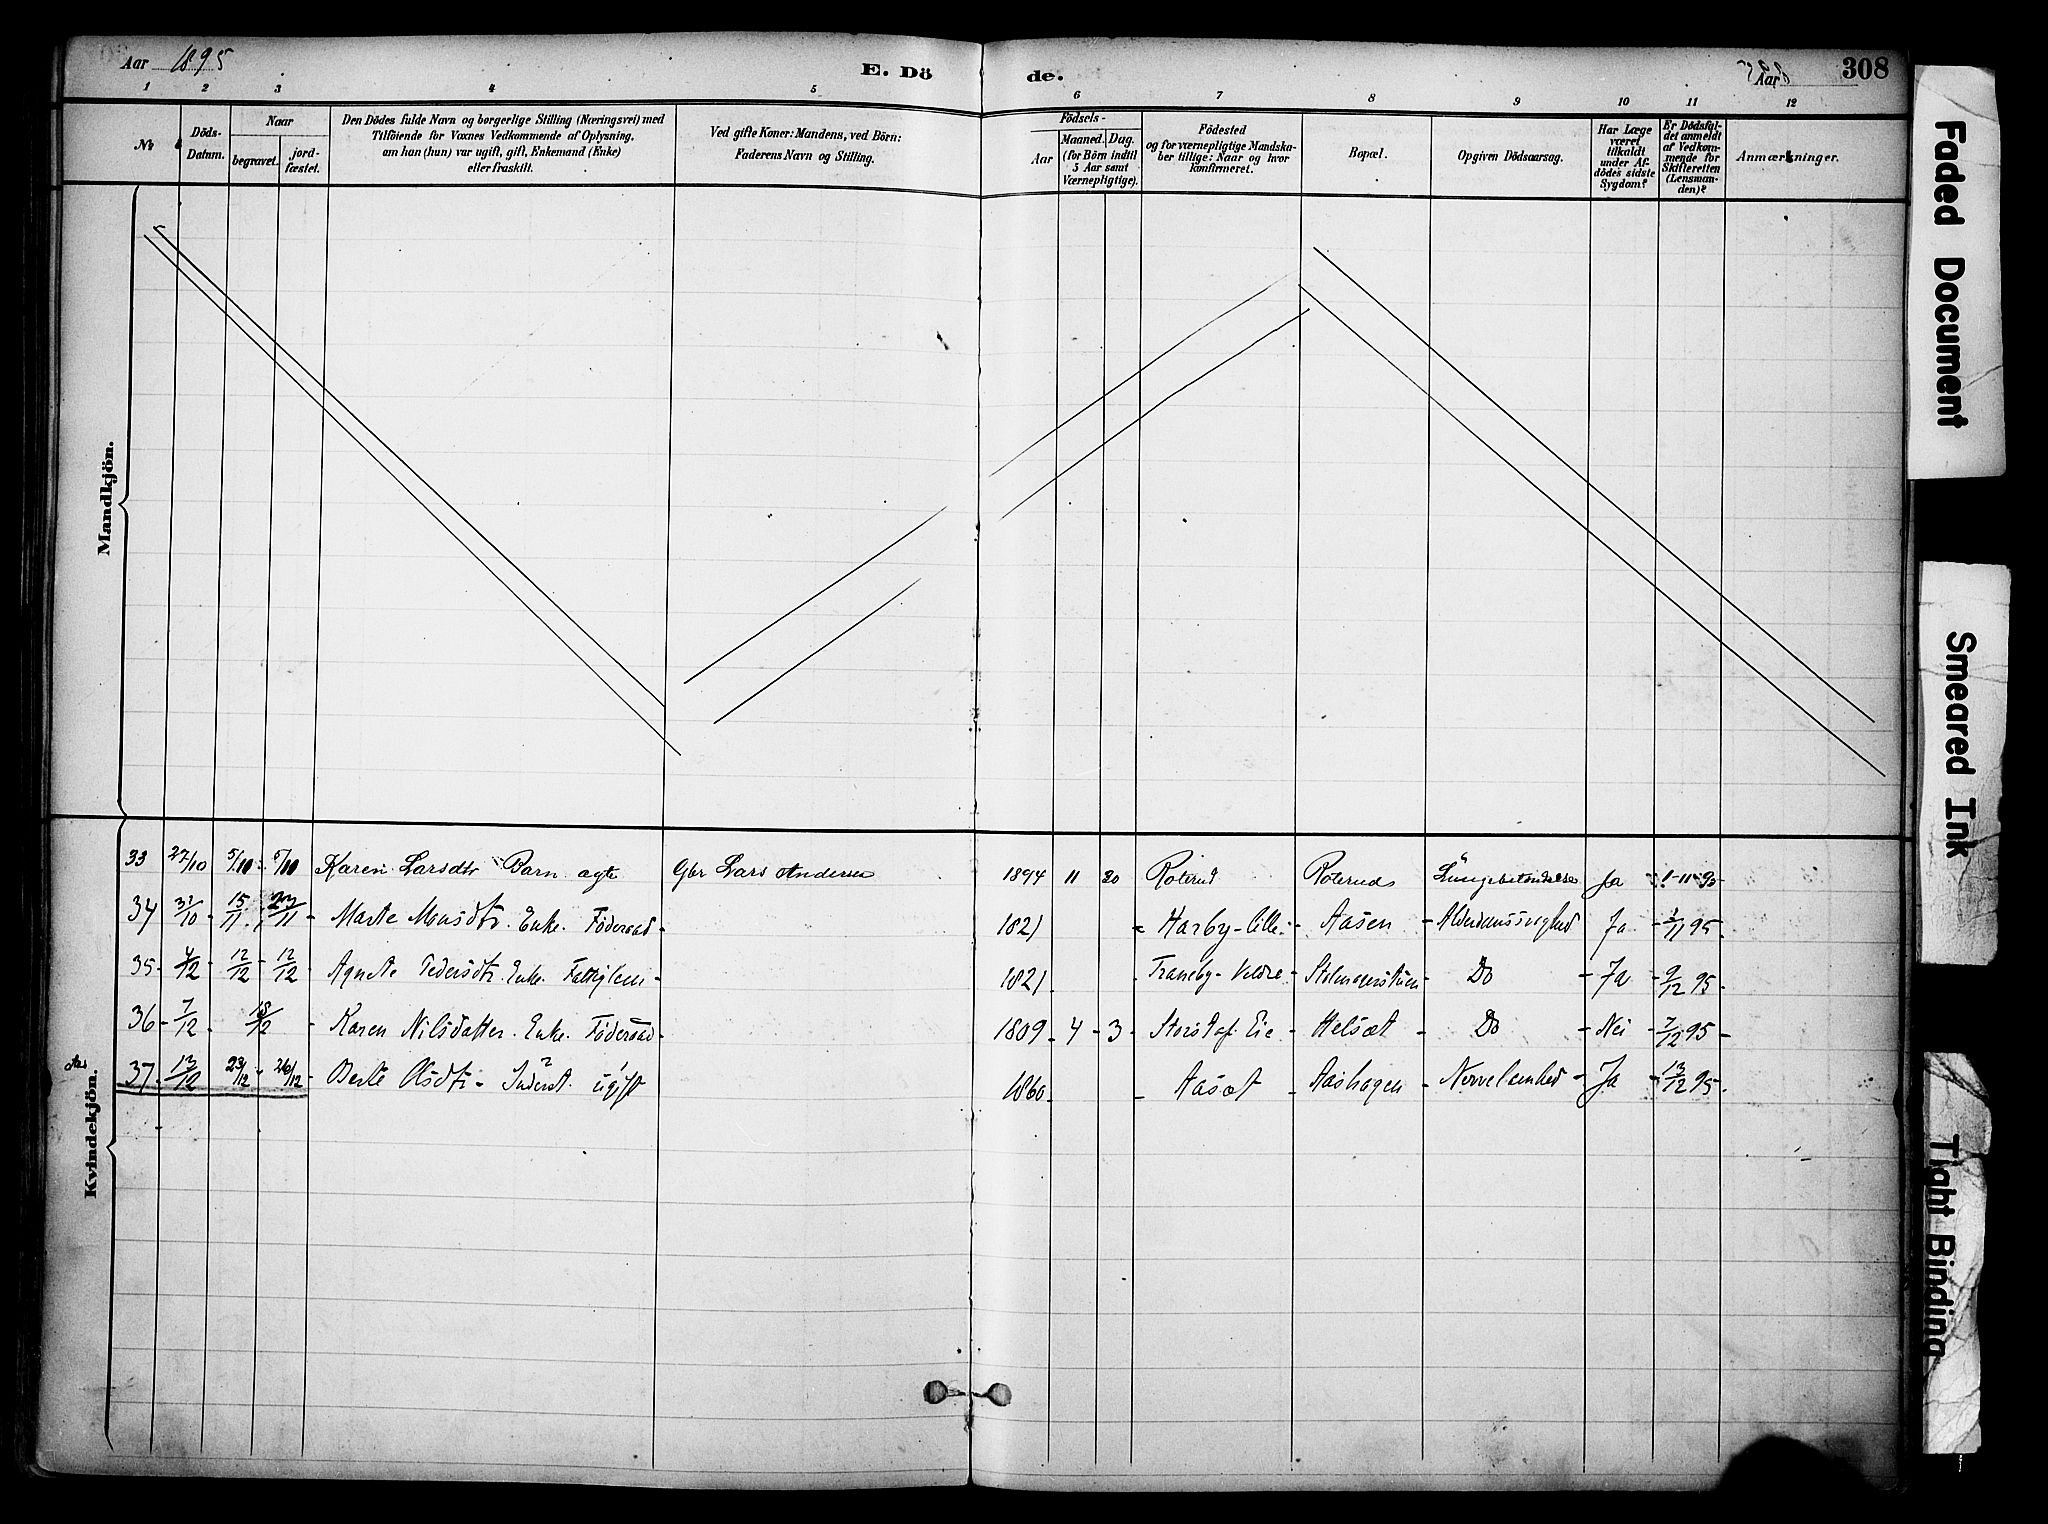 Aar 1895
E. Dö
de.
Aar 1895
308
1 2 3 4 5 6 7 8 9 10 11 12
No
Döds-
Datum.
Naar
begravet.
jord-
fæstet.
Den Dödes fulde Navn og borgerlige Stilling (Næringsvei) med
Tilföiende for Voxnes Vedkommende af Oplysning,
om han (hun) var ugift, gift, Enkemand (Enke)
eller fraskilt.
Ved gifte Koner: Mandens, ved Börn:
Faderens Navn og Stilling.
Födsels-
Aar
Maaned. Dag.
(for Börn indtil
5 Aar samt
Værnepligtige).
Födested
og for værnepligtige Mandska-
ber tillige: Naar og hvor
konfirmeret.
Bopæl.
Opgiven Dödsaarsag.
Har Læge
været
tilkaldt
under Af-
dödes sidste
Sygdom?
Er Dödsfal-
det anmeldt
af Vedkom-
mende for
Skifteretten
(Lensman-
den)?
Anmærkninger.
Mandkjön.
Kvindekjön.
33 27/10 5/10 5/10 Karen Larsdtr Barn ægte Gbr Lars Andersen 1894 11 20 Roterud Roterud Lungebetændelse Ja 1-11-95
34 31/10 - 15/11 23/11 - Marte Monsdtr. Enke. Föderaad - 1821 - Harby-lille - Aasen - Alderdomssvaghed Ja - 1/11 95 -
35 - 4/12 - 12/12 - 12/12 - Agnete Pedersdtr. Enke. Fattiglem - 1821 - Traneby - Veldre - - Do - Ja - 9/12 95 -
36 - 7/12 - 18/12 - Karen Nilsdatter. Enke. Föderaad - 1809 - 4 - 3 - Storstaf. Eie - Helsæt - Do - Nei - 7/12 95 -
37 - 13/12 23/12 - 26/12 - Berte Olsdtr - Inderst. ugift 1860 - - Aasæt - Aashagen - Nervefeenhed - Ja - 13/12 95 -
Faded Document
Smeared Ink
Tight Binding